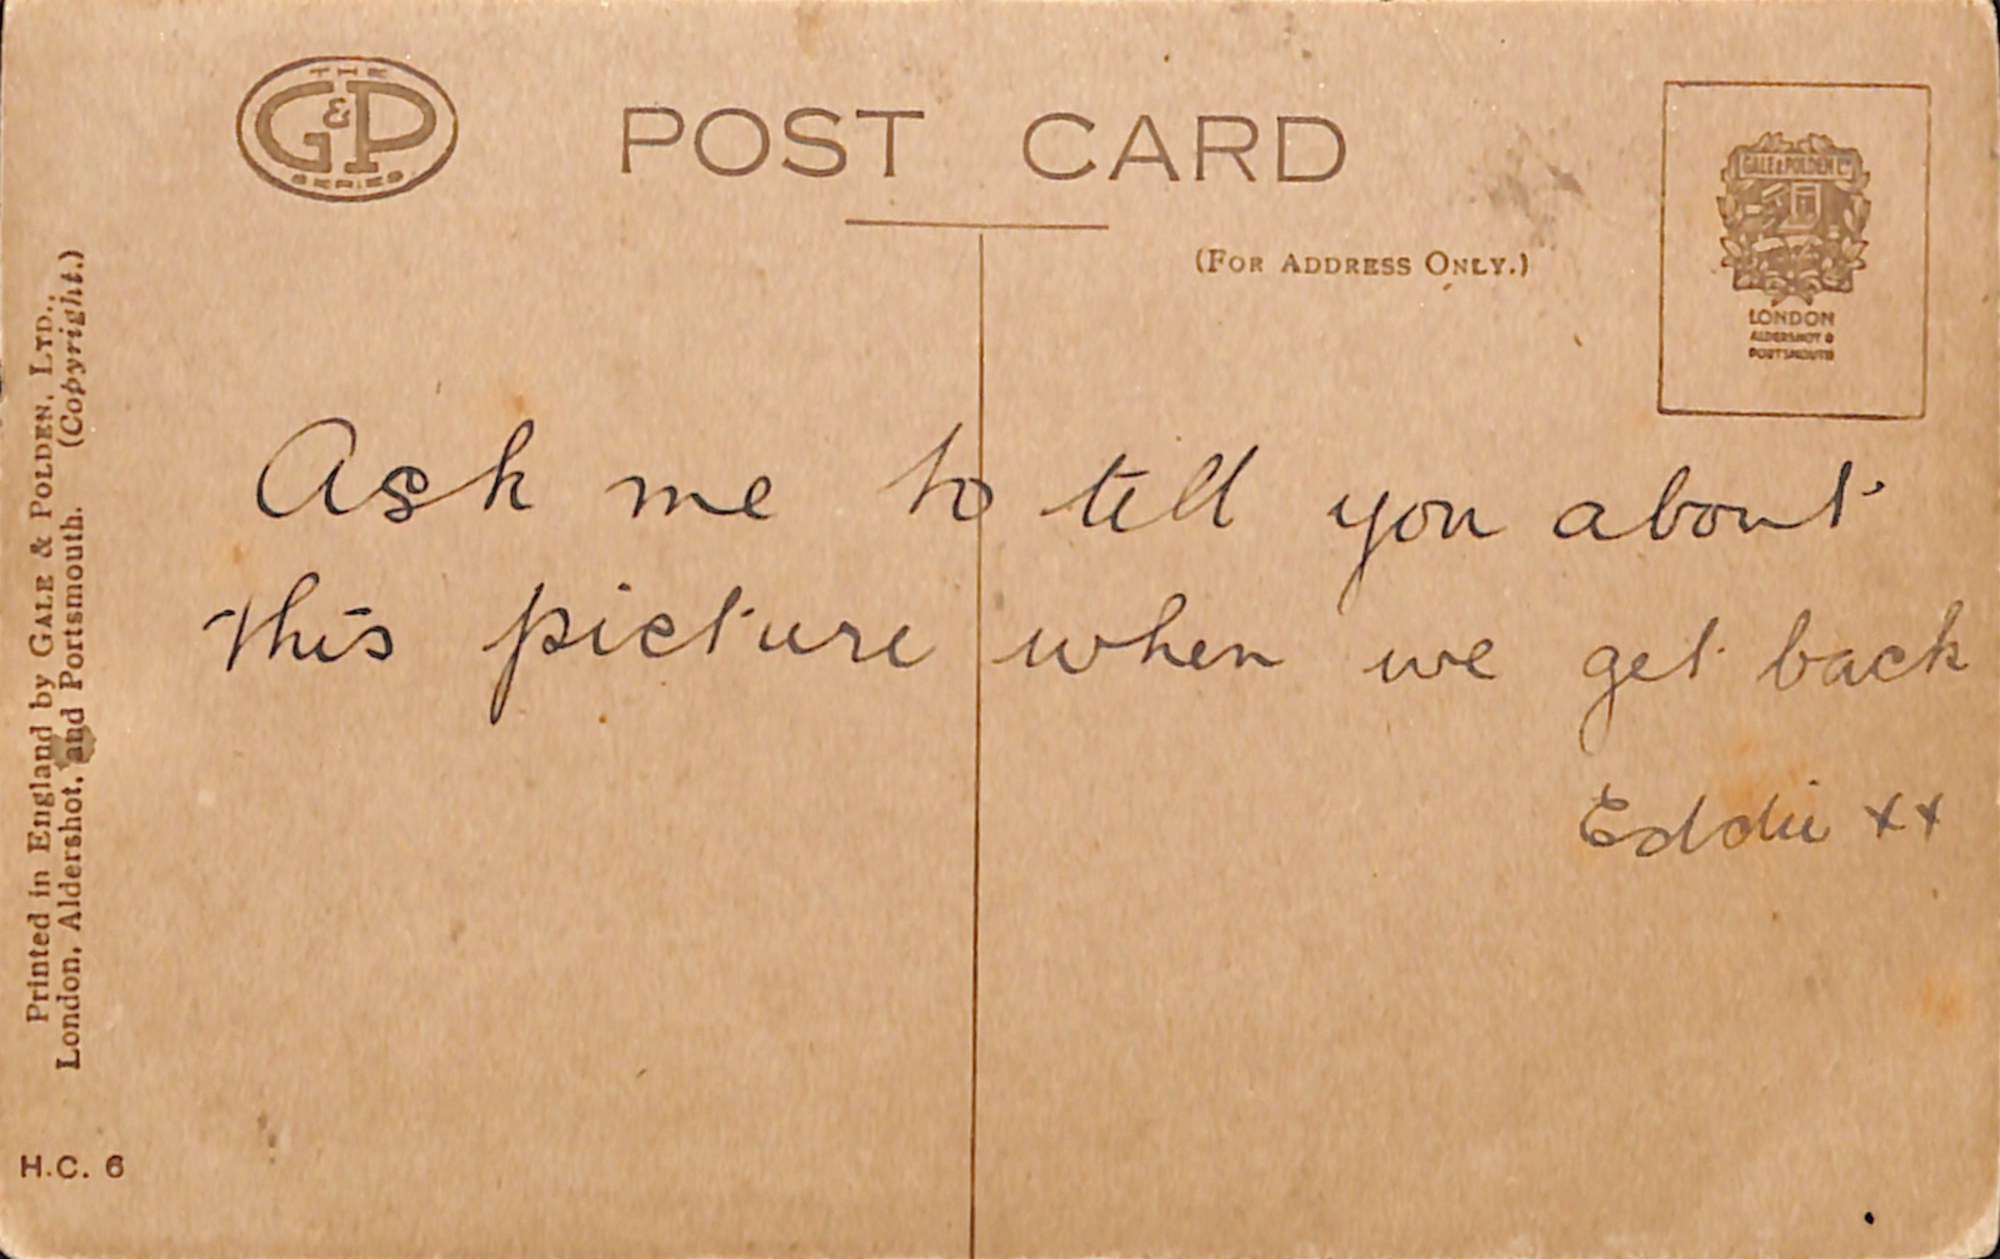 THE
G&P
SERIES
POST CARD
(FOR ADDRESS ONLY.)
GALE & POLDEN LTD
LONDON
ALDERSHOT &
PORTSMOUTH
Printed in England by GALE & POLDEN, LTD.,
London, Aldershot, and Portsmouth. (Copyright.)
Ask me to tell you about
this picture when we get back
Eddie xx
H.C. 6